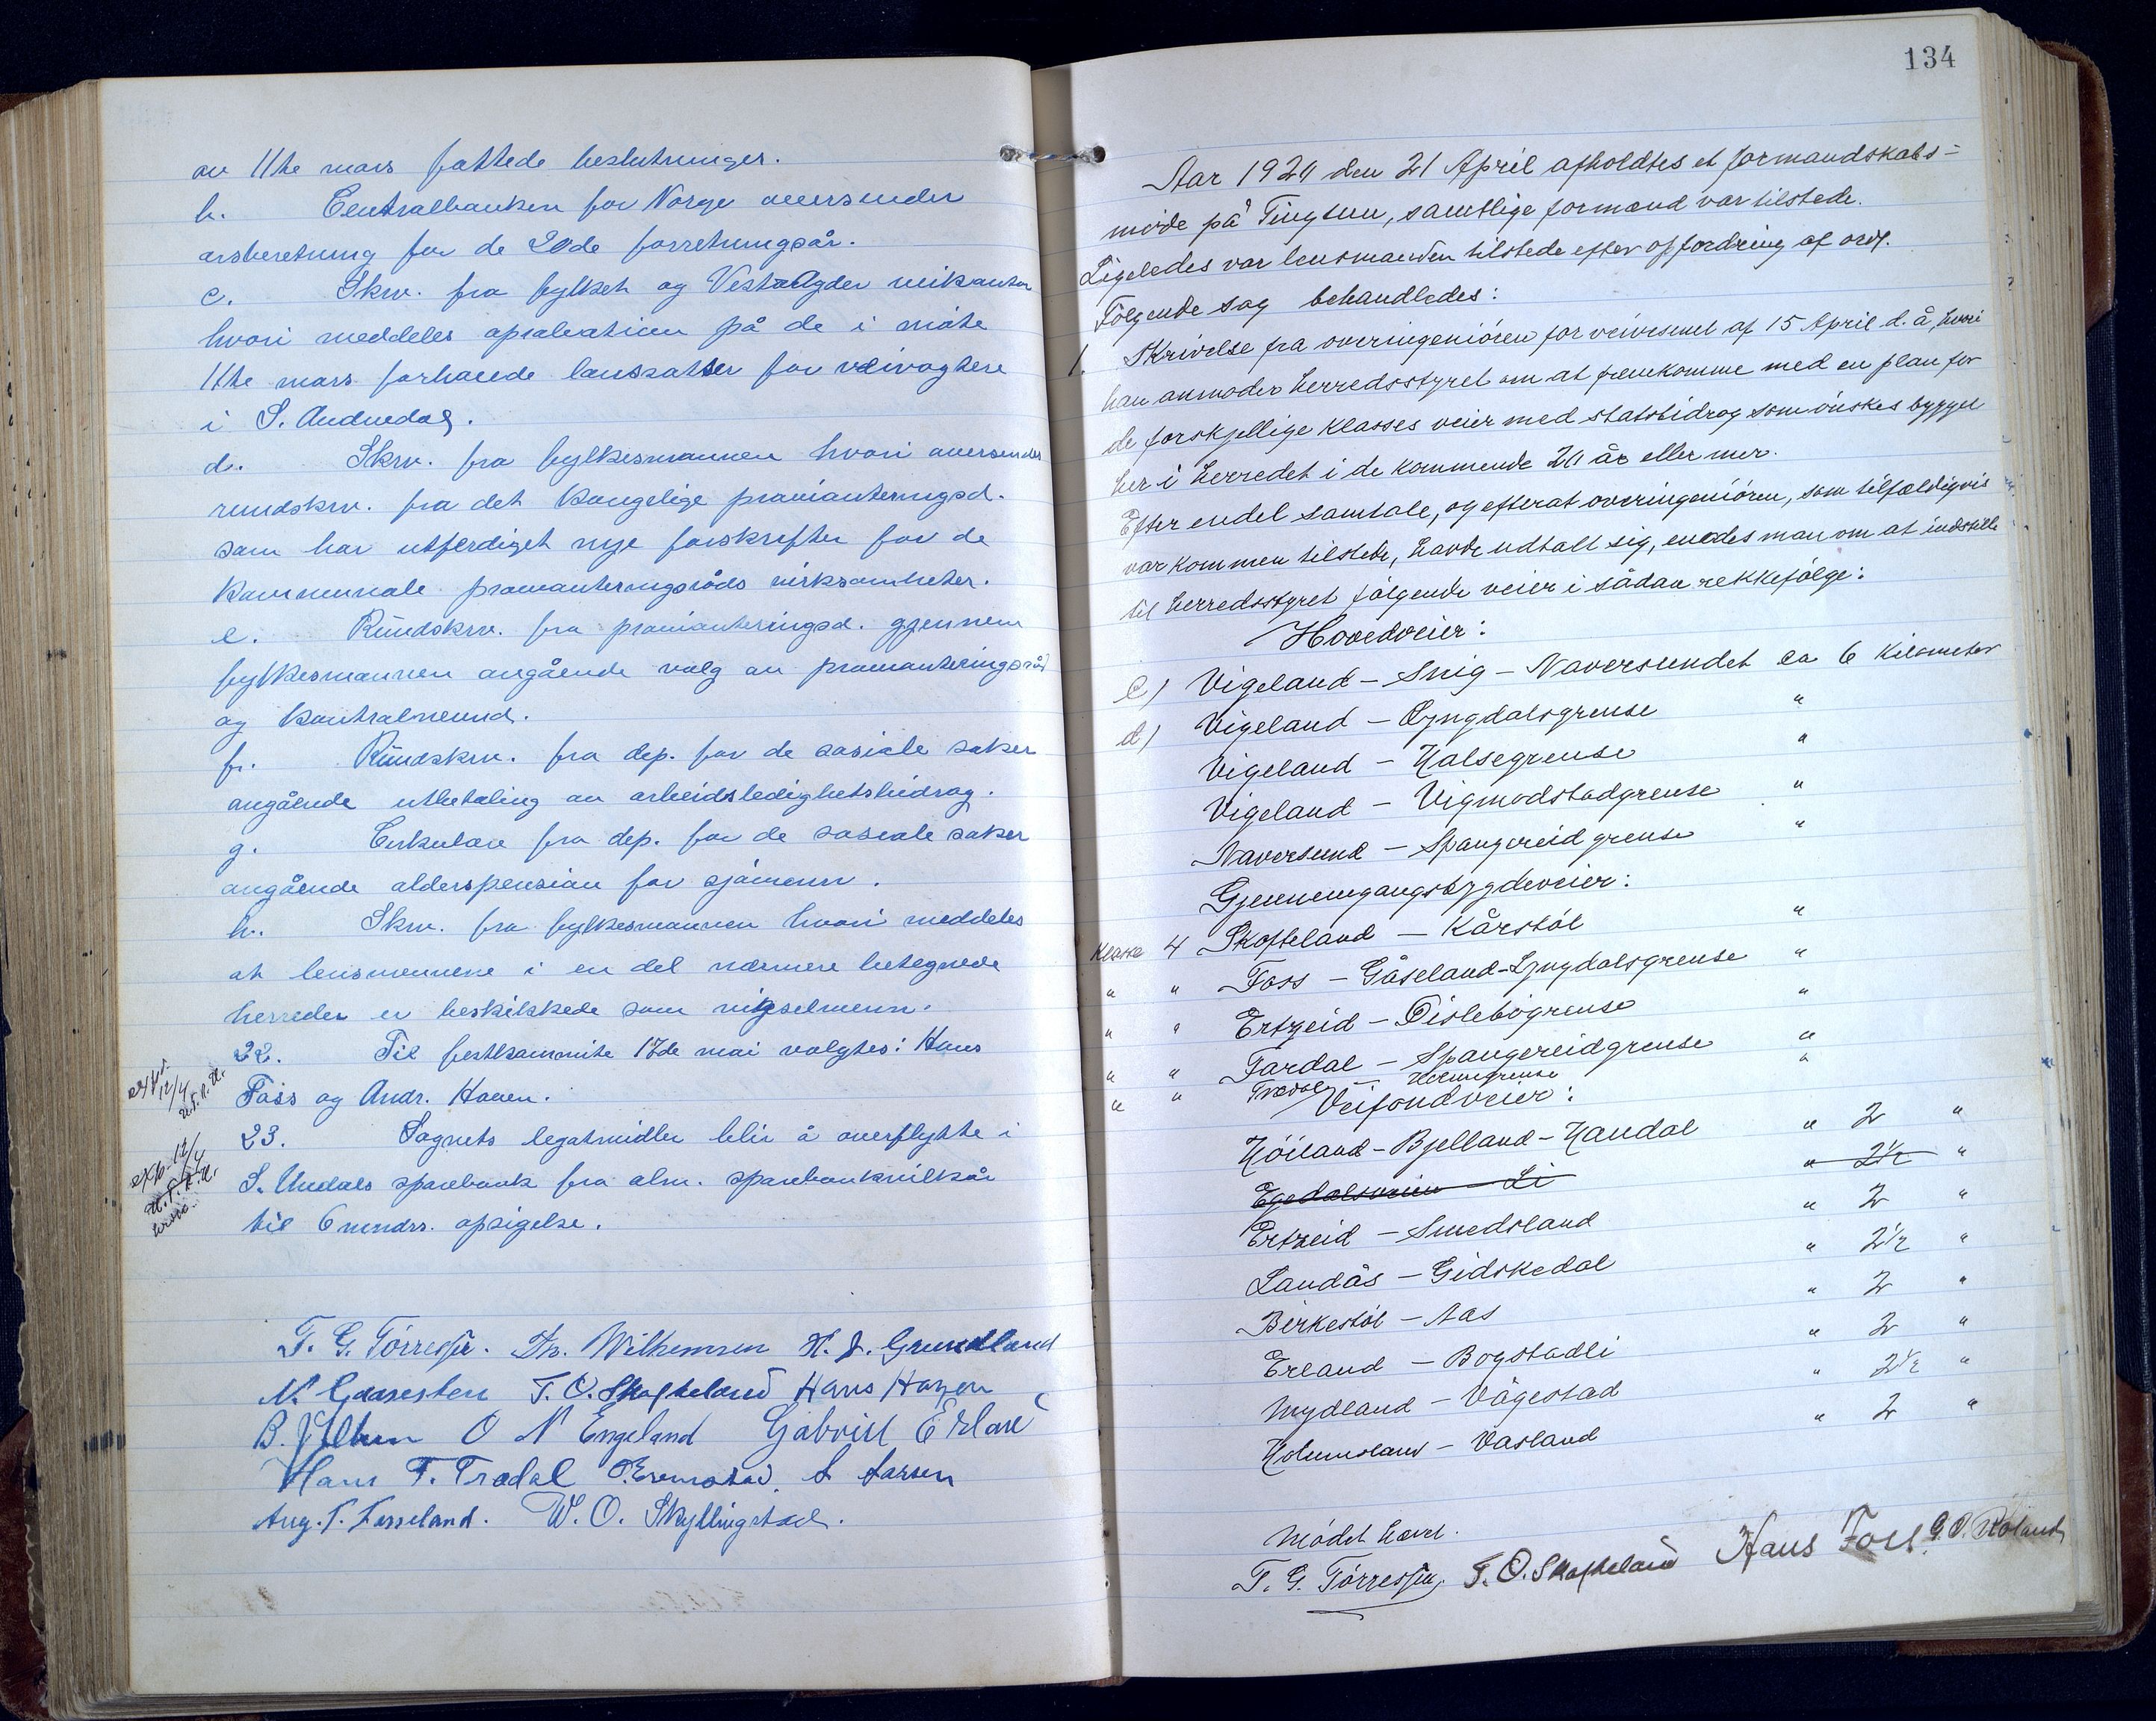 av 11te mars fattede beslutninger.
b. Centralbanken for Norge oversender
årsberetning for de 20de forretningsår.
c. Skrv. fra fylket og Vest-Agder veikontor
hvori meddeles aprobation på de i møte
11te mars forhøiede lønssatser for veivogtere
i S. Audnedal.
d. Skrv. fra fylkesmannen hvori oversendes
rundskrv. fra det kongelige provianteringsd.
som har utferdiget nye forskrifter for de
kommunale provianteringsråds virksomheter.
e. Rundskrv. fra provianteringsd. gjennem
fylkesmannen angående valg av provianteringsråd
og kontrolnevnd.
f. Rundskrv. fra dep. for de sosiale saker
angående utbetaling av arbeidsledighetsbidrag.
g. Cirkulære fra dep. for de sosiale saker
angående alderspension for sjømenn.
h. Skrv. fra fylkesmannen hvori meddeles
at lensmennene i en del nærmere betegnede
herreder er beskikkede som vigselmenn.
22. Til festkommite 17de mai valgtes: Hans
Foss og Andr. Hauen.
23. Sognets legatmidler blir å overflytte i
S. Undals sparebank fra alm. sparebankvilkår
til 6 mndrs. opsigelse.
12/4
12/4
T. G. Tørressen. Th. Wilhemsen H. J. Grundland
N. Gaaresten T. O. Skofteland Hans Hauen
O N Engeland Gabriel
Hans T. Tredal Larsen
Aug. T. Fosseland. W. O. Skyllingstad.
134
Aar 1920 den 21 April afholdtes et formandskabs-
møde på Tingtun, samtlige formænd var tilstede.
Ligeledes var lensmanden tilstede efter opfordring af ordf.
Følgende sag behandledes:
1. Skrivelse fra overingeniøren for veivesenet af 15 April d. å, hvori
han anmoder herredsstyret om at fremkomme med en plan for
de forskjellige klasses veier med statsbidrag som ønskes bygget
her i herredet i de kommende 20 år eller mer.
Efter endel samtale, og efterat overingeniøren, som tilfældigvis
var kommen tilstede, havde udtalt sig, enedes man om at indstille
til herredsstyret følgende veier i sådan rekkefølge:
Hovedveier:
c) Vigeland - Snig - Naversundet ca 6 Kilometer
d) Vigeland - Lyngdalsgrense "
Vigeland - Halsegrense "
Vigeland - Vigmostadgrense "
Naversund - Spangereid grense "
Gjennemgangsbygdeveier:
Klasse 4 Skofteland - Kårstøl "
" " Foss - Gåseland-Lyngdalsgrense "
" " Ertzeid - Oislebøgrense "
" " Fardal - Spangereidgrense "
" " Trædal - Holumgrense "
Veifondveier:
Höiland - Bjelland - Haudal " 2 "
Egedalsveien - Li " 2½ "
Ertzeid - Smedsland " 2 "
Landås - Gidskedal " 2½ "
Birkestøl - Aas " 2 "
Erland - Bogstadli " 2 "
Mydland - Vågestad " 2½ "
Holumsland - Vasland " 2 "
Mødet hævet.
T. G. Tørressen. T. O. Skofteland Hans Foss.